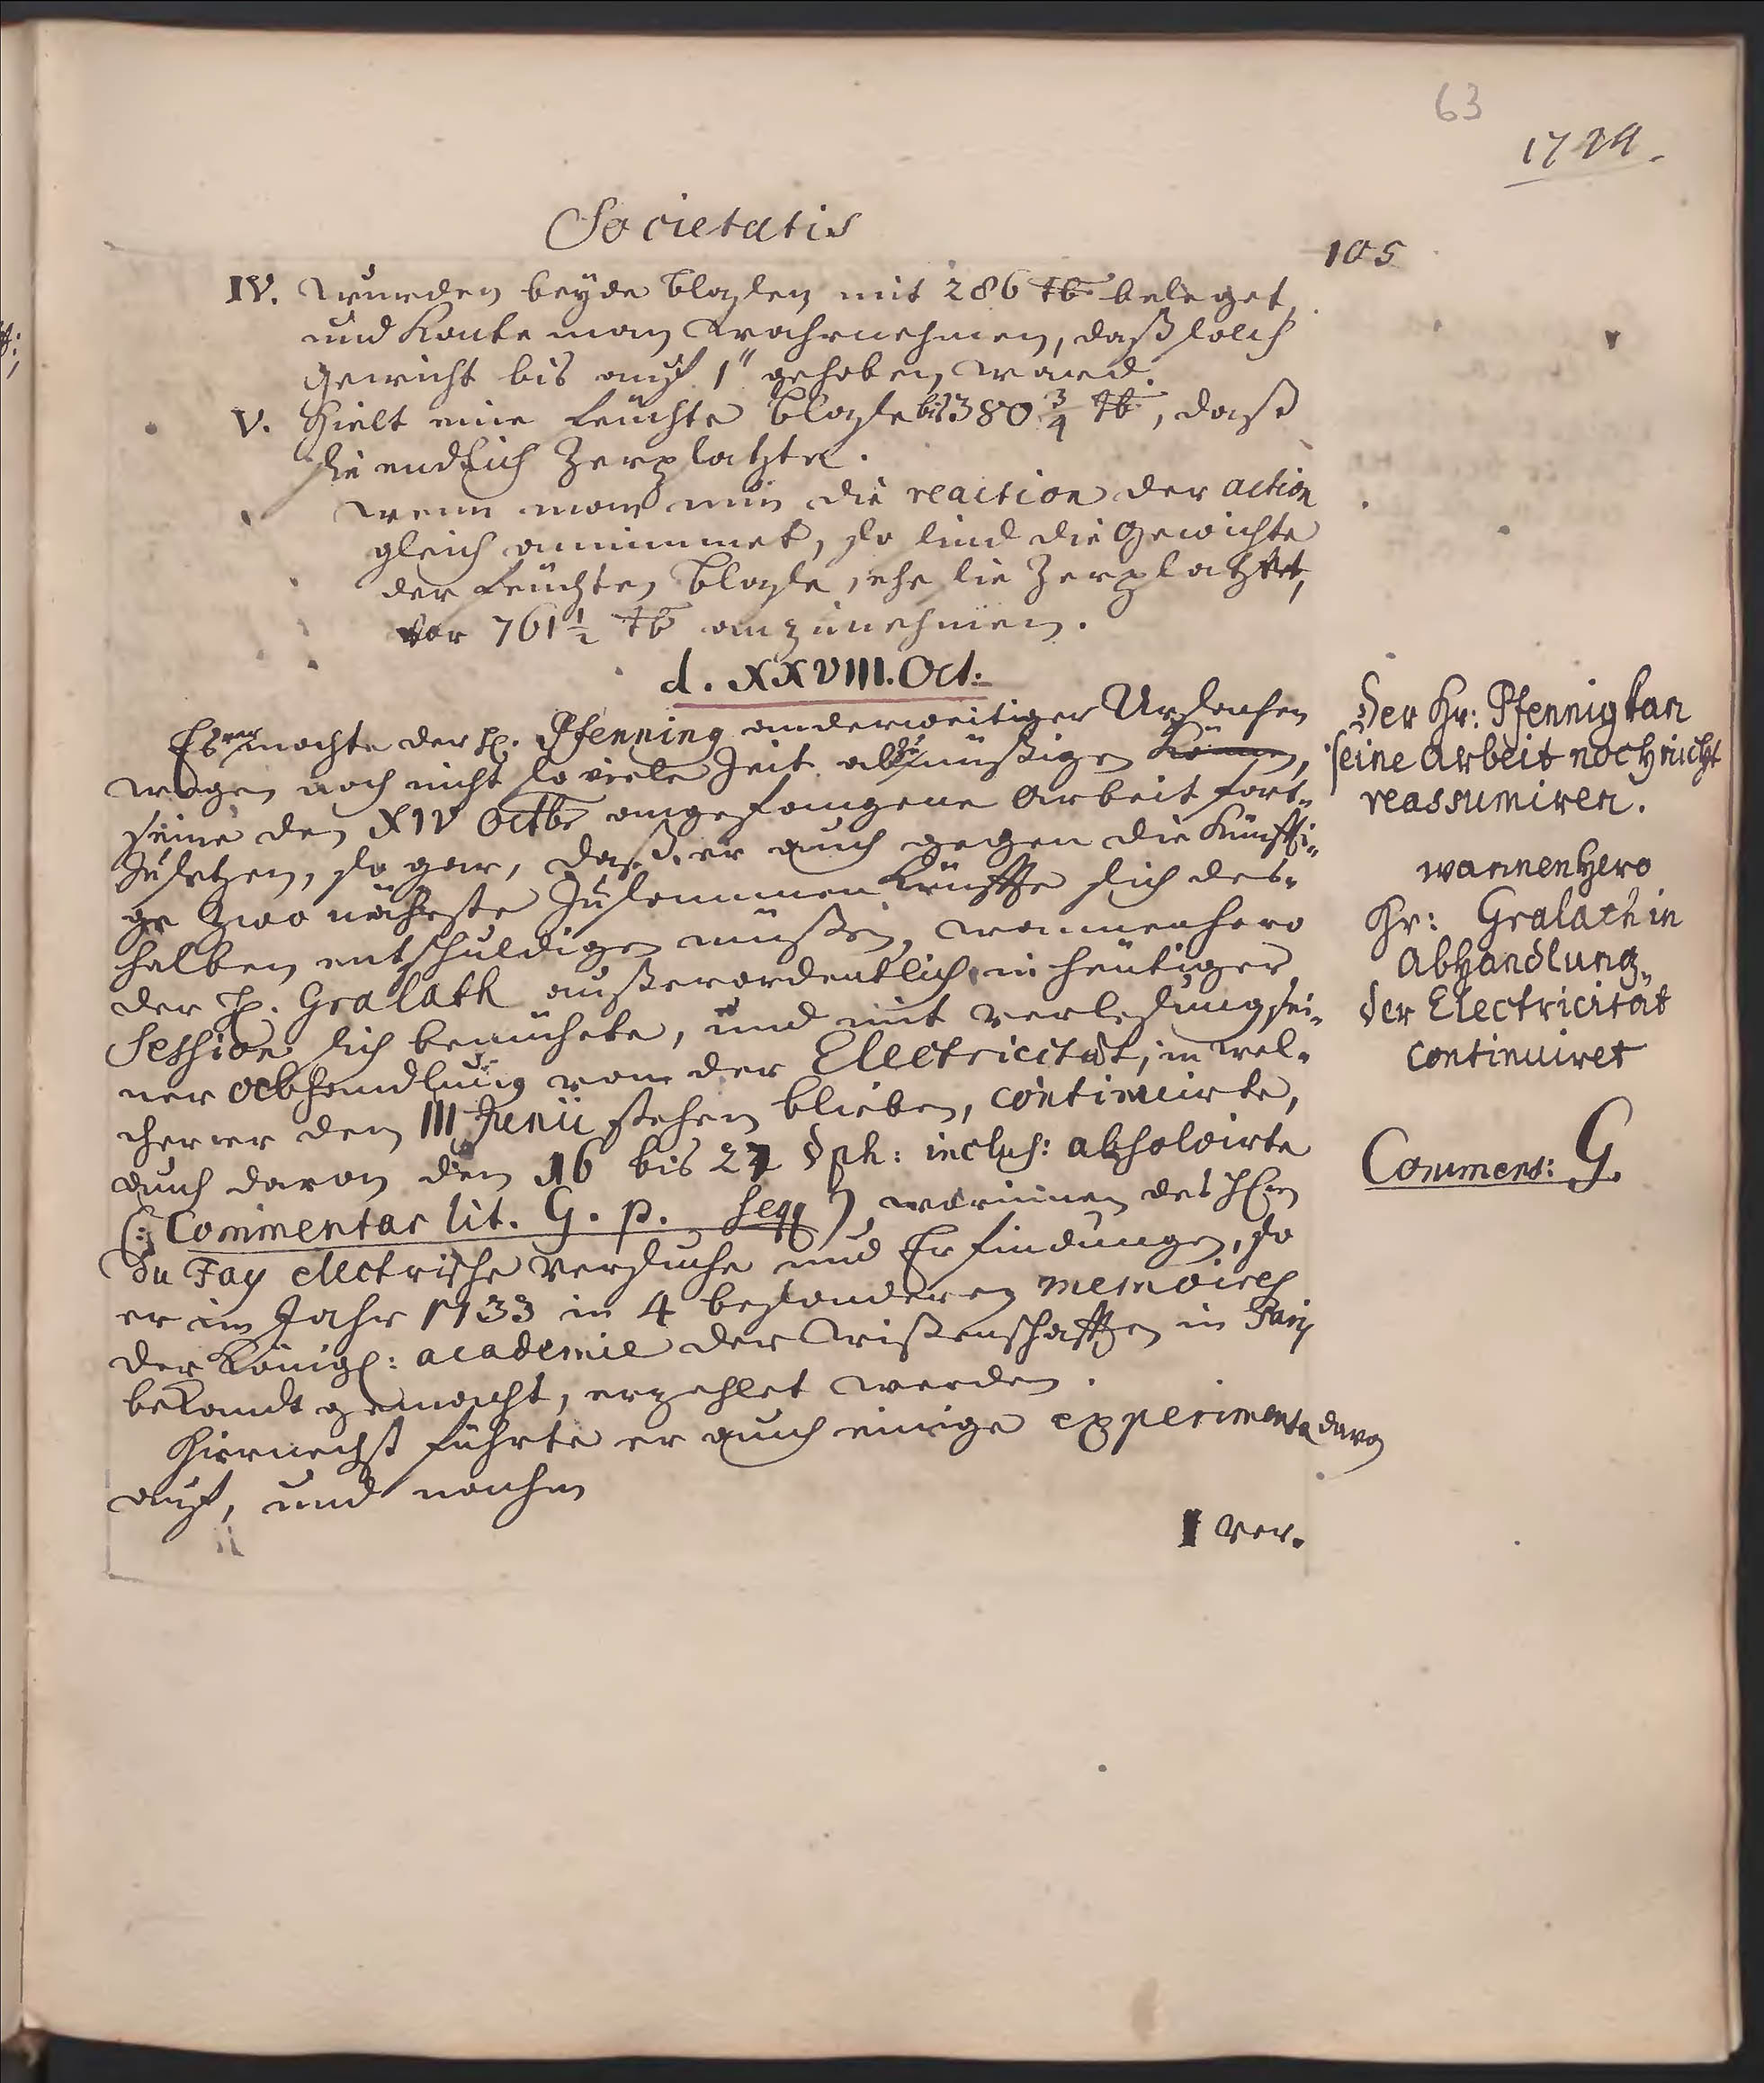 63
1744.
Societatis
105
IV. Wurden beyde Blasen mit 286 ℔ beleget,
und konte man wahrnehmen, daß solch
Gewicht bis auf 1" gehoben ward.
V. Hielt eine feuchte Blase bis 380 3/4 ℔, daß
sie endlich zerplatzte.
Wenn man nun die reaction der action
gleich annimmet, so sind die Gewichte
der feuchten Blase, ehe sie zerplatzet,
vor 761 1/2 ℔ anzunehmen.
d. XXVIII. Oct:
Es vermochte der H. Pfenning anderweitiger Ursachen
wegen noch nicht so viele Zeit abzumüßigen können,
seine den XIV Octbr angefangene Arbeit fort-
zusetzen, so gar, daß er auch gegen die künffti-
ge zwo nächste Zusammenkünffte sich des-
halben entschuldigen müßen, wannenhero
der H. Gralath außerordentlich in heutiger
Session sich bemühete, und mit Verlesung sei-
ner Abhandlung von der Electricität, in wel-
cher er den III Junii stehen blieben, continuirte,
auch davon den 16 bis 27 §ph: inclus: absolvirte
(: Commentar lit. G. p. seqq ), worinnen des HEn
du Fay electrische Versuche und Erfindungen, so
er im Jahr 1733 in 4 besonderen memoires
der Königl: academie der Wißenschafften in Paris
bekandt gemacht, erzehlet werden.
Hiernechst führte er auch einige experimenta davon
auf, und nahm
I Ver-
Der Hr: Pfennig kan
seine Arbeit noch nicht
reassumiren.
wannenhero
Hr: Gralath in
Abhandlung
der Electricität
continuiret
Comment: G.